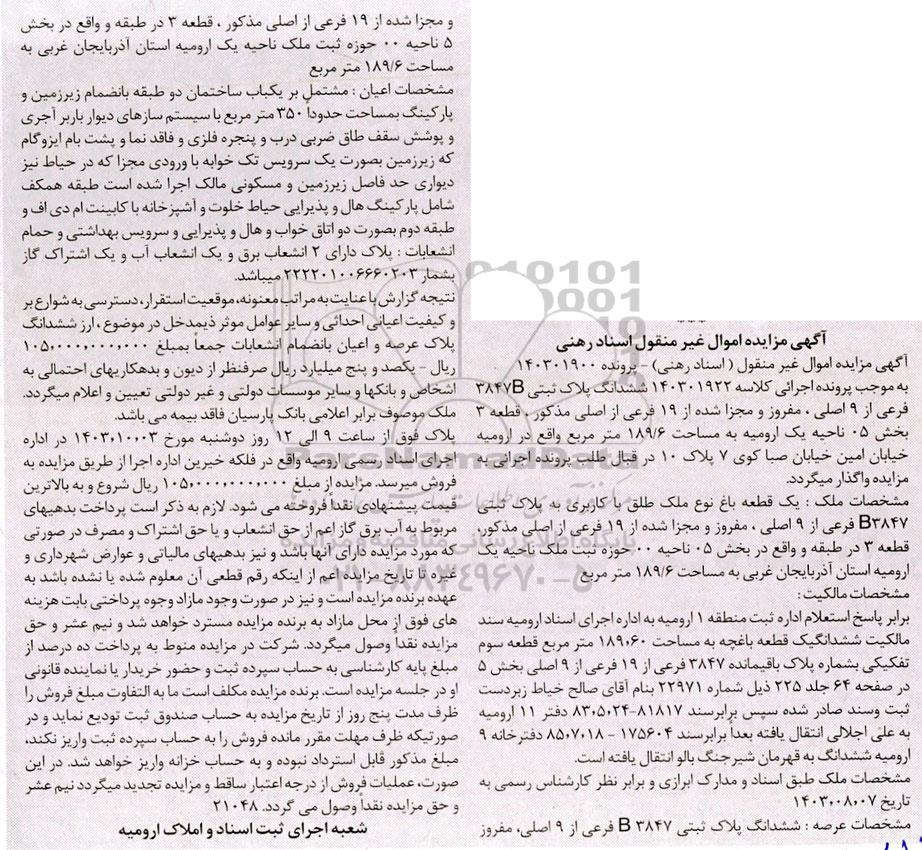 آگهی مزایده اموال غیر منقول اسناد رهنی
آگهی مزایده اموال غیر منقول ( اسناد رهنی) - پرونده ۱۴۰۳۰۱۹۰۰
به موجب پرونده اجرائی کلاسه ۱۴۰۳۰۱۹۲۲ ششدانگ پلاک ثبتی ۳۸۴۷B
فرعی از ۹ اصلی ، مفروز و مجزا شده از ۱۹ فرعی از اصلی مذکور ، قطعه ۳
بخش ۰۵ ناحیه یک ارومیه به مساحت ۱۸۹/۶ متر مربع واقع در ارومیه
خیابان امین خیابان صبا کوی ۷ پلاک ۱۰ در قبال طلب پرونده اجرائی به
مزایده واگذار میگردد.
مشخصات ملک : یک قطعه باغ نوع ملک طلق با کاربری به پلاک ثبتی
B۳۸۴۷ فرعی از ۹ اصلی ، مفروز و مجزا شده از ۱۹ فرعی از اصلی مذکور،
قطعه ۳ در طبقه و واقع در بخش ۰۵ ناحیه ۰۰ حوزه ثبت ملک ناحیه یک
ارومیه استان آذربایجان غربی به مساحت ۱۸۹/۶ متر مربع
مشخصات مالکیت :
برابر پاسخ استعلام اداره ثبت منطقه ۱ ارومیه به اداره اجرای اسناد ارومیه سند
مالکیت ششدانگیک قطعه باغچه به مساحت ۱۸۹،۶۰ متر مربع قطعه سوم
تفکیکی بشماره پلاک باقیمانده ۳۸۴۷ فرعی از ۱۹ فرعی از ۹ اصلی بخش ۵
در صفحه ۶۴ جلد ۲۲۵ ذیل شماره ۲۲۹۷۱ بنام آقای صالح خیاط زبردست
ثبت وسند صادر شده سپس برابرسند ۸۱۸۱۷-۸۳،۵،۲۴ دفتر ۱۱ ارومیه
به علی اجلالی انتقال یافته بعداً برابرسند ۱۷۵۶۰۴ - ۸۵،۷،۱۸ دفترخانه ۹
ارومیه ششدانگ به قهرمان شیرجنگ بالو انتقال یافته است.
مشخصات ملک طبق اسناد و مدارک ابرازی و برابر نظر کارشناس رسمی به
تاریخ ۱۴۰۳،۰۸،۰۷
مشخصات عرصه : ششدانگ پلاک ثبتی ۳۸۴۷ B فرعی از ۹ اصلی، مفروز
و مجزا شده از ۱۹ فرعی از اصلی مذکور ، قطعه ۳ در طبقه و واقع در بخش
۵ ناحیه ۰۰ حوزه ثبت ملک ناحیه یک ارومیه استان آذربایجان غربی به
مساحت ۱۸۹/۶ متر مربع
مشخصات اعیان : مشتمل بر یکباب ساختمان دو طبقه بانضمام زیرزمین و
پارکینگ بمساحت حدوداً ۳۵۰ متر مربع با سیستم سازهای دیوار باربر آجری
و پوشش سقف طاق ضربی درب و پنجره فلزی و فاقد نما و پشت بام ایزوگام
که زیرزمین بصورت یک سرویس تک خوابه با ورودی مجزا که در حیاط نیز
دیواری حد فاصل زیرزمین و مسکونی مالک اجرا شده است طبقه همکف
شامل پارکینگ هال و پذیرایی حیاط خلوت و آشپزخانه با کابینت ام دی اف و
طبقه دوم بصورت دو اتاق خواب و هال و پذیرایی و سرویس بهداشتی و حمام
انشعابات : پلاک دارای ۲ انشعاب برق و یک انشعاب آب و یک اشتراک گاز
بشمار ۲۲۲۲۰۱۰۰۶۶۶۰۲۰۳ میباشد.
نتیجه گزارش با عنایت به مراتب معنونه، موقعیت استقرار، دسترسی به شوارع بر
و کیفیت اعیانی احداثی و سایر عوامل موثر ذیمدخل در موضوع ، ارز ششدانگ
پلاک عرصه و اعیان بانضمام انشعابات جمعاً بمبلغ ۱۰۵،۰۰۰،۰۰۰،۰۰۰
ریال - یکصد و پنج میلیارد ریال صرفنظر از دیون و بدهکاریهای احتمالی به
اشخاص و بانکها و سایر موسسات دولتی و غیر دولتی تعیین و اعلام میگردد.
ملک موصوف برابر اعلامی بانک پارسیان فاقد بیمه می باشد.
پلاک فوق از ساعت ۹ الی ۱۲ روز دوشنبه مورخ ۱۴۰۳،۱۰،۰۳ در اداره
اجرای اسناد رسمی ارومیه واقع در فلکه خیرین اداره اجرا از طریق مزایده به
فروش میرسد. مزایده از مبلغ ۱۰۵،۰۰۰،۰۰۰،۰۰۰ ریال شروع و به بالاترین
قیمت پیشنهادی نقداً فروخته می شود. لازم به ذکر است پرداخت بدهیهای
مربوط به آب برق گاز اعم از حق انشعاب و یا حق اشتراک و مصرف در صورتی
که مورد مزایده دارای آنها باشد و نیز بدهیهای مالیاتی و عوارض شهرداری و
غیره تا تاریخ مزایده اعم از اینکه رقم قطعی آن معلوم شده یا نشده باشد به
عهده برنده مزایده است و نیز در صورت وجود مازاد وجوه پرداختی بابت هزینه
های فوق از محل مازاد به برنده مزایده مسترد خواهد شد و نیم عشر و حق
مزایده نقداً وصول میگردد. شرکت در مزایده منوط به پرداخت ده درصد از
مبلغ پایه کارشناسی به حساب سپرده ثبت و حضور خریدار یا نماینده قانونی
او در جلسه مزایده است. برنده مزایده مکلف است ما به التفاوت مبلغ فروش را
ظرف مدت پنج روز از تاریخ مزایده به حساب صندوق ثبت تودیع نماید و در
صورتیکه ظرف مهلت مقرر مانده فروش را به حساب سپرده ثبت واریز نکند،
مبلغ مذکور قابل استرداد نبوده و به حساب خزانه واریز خواهد شد. در این
صورت، عملیات فروش از درجه اعتبار ساقط و مزایده تجدید میگردد نیم عشر
و حق مزایده نقداً وصول می گردد. ۲۱۰۴۸
شعبه اجرای ثبت اسناد و املاک ارومیه